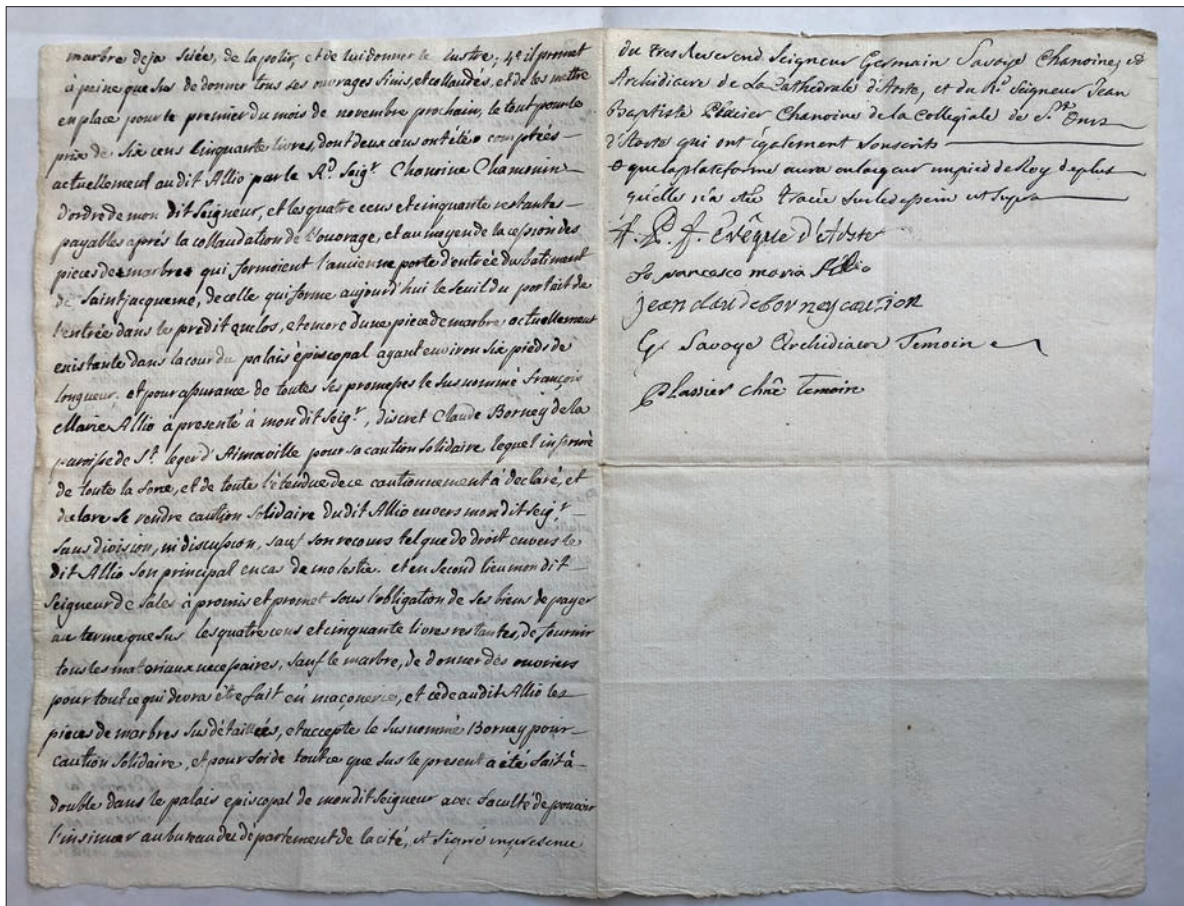 marbre deja sciée, de la polir, et de lui donner le lustre; 4e il promet
à peine que sus de donner tous ses ouvrages finis, et collaudés, et de les mettre
en place pour le premier du mois de novembre prochain, le tout pour le
prix de six cens cinquante livres, dont deux cens ont été comptées
actuellement au dit Allio par le Rd. Seigr. Chanoine Chamonin
d'ordre de mon dit Seigneur, et les quatre cens et cinquante restantes
payables aprés la collaudation de l'ouvrage, et au moyen de la cession des
pieces de marbre qui formoient l'ancienne porte d'entrée du batiment
de Saint jacqueme, de celle qui forme aujourd'hui le seuil du portail de
l'entrée dans le predit enclos, et encore d'une piece de marbre actuellement
existante dans la cour du palais épiscopal ayant environ six pieds de
longueur. et pour assurance de toutes ses promesses le susnommé françois
Marie Allio à presenté à mon dit Seigr., discret Claude Borney de la
parroisse de St. leger d'Aimaville pour sa caution solidaire lequel informé
de toute la force, et de toute l'étendue de ce cautionnement à declaré, et
declare se rendre caution solidaire du dit Allio envers mon dit Seigr.
sans division, ni discussion, sauf son recours tel que de droit envers le
dit Allio son principal en cas de molestie. et en second lieu mon dit
Seigneur de Sales à promis et promet sous l'obligation de ses biens de payer
au terme que sus les quatre cens et cinquante livres restantes, de fournir
tous les materiaux necessaires, sauf le marbre, de donner des ouvriers
pour tout ce qui devra être fait en maçonerie, et cede audit Allio les
pieces de marbres sus détaillées, et accepte le susnommé Borney pour
caution solidaire, et pour foi de tout ce que sus le present a été fait à
double dans le palais episcopal de mon dit Seigneur avec faculté de pouvoir
l'insinuer au bureau du département de la cité, et signé en presence
du tres Reverend Seigneur Germain Savoye Chanoine, et
Archidiacre de La Cathedrale d'Aoste, et du Rd. Seigneur Jean
Baptiste Plassier Chanoine de la Collegiale de St. Ours
d'Aoste qui ont également souscrits
que la plateforme aura en largeur un pied de Roy de plus
qu'elle n'a été tracée sur le dessein ut supra
évêque d'Aoste
Io francesco maria Allio
jean claude Borney caution
G. Savoye Archidiacre Temoin
Plassier chne. Temoin